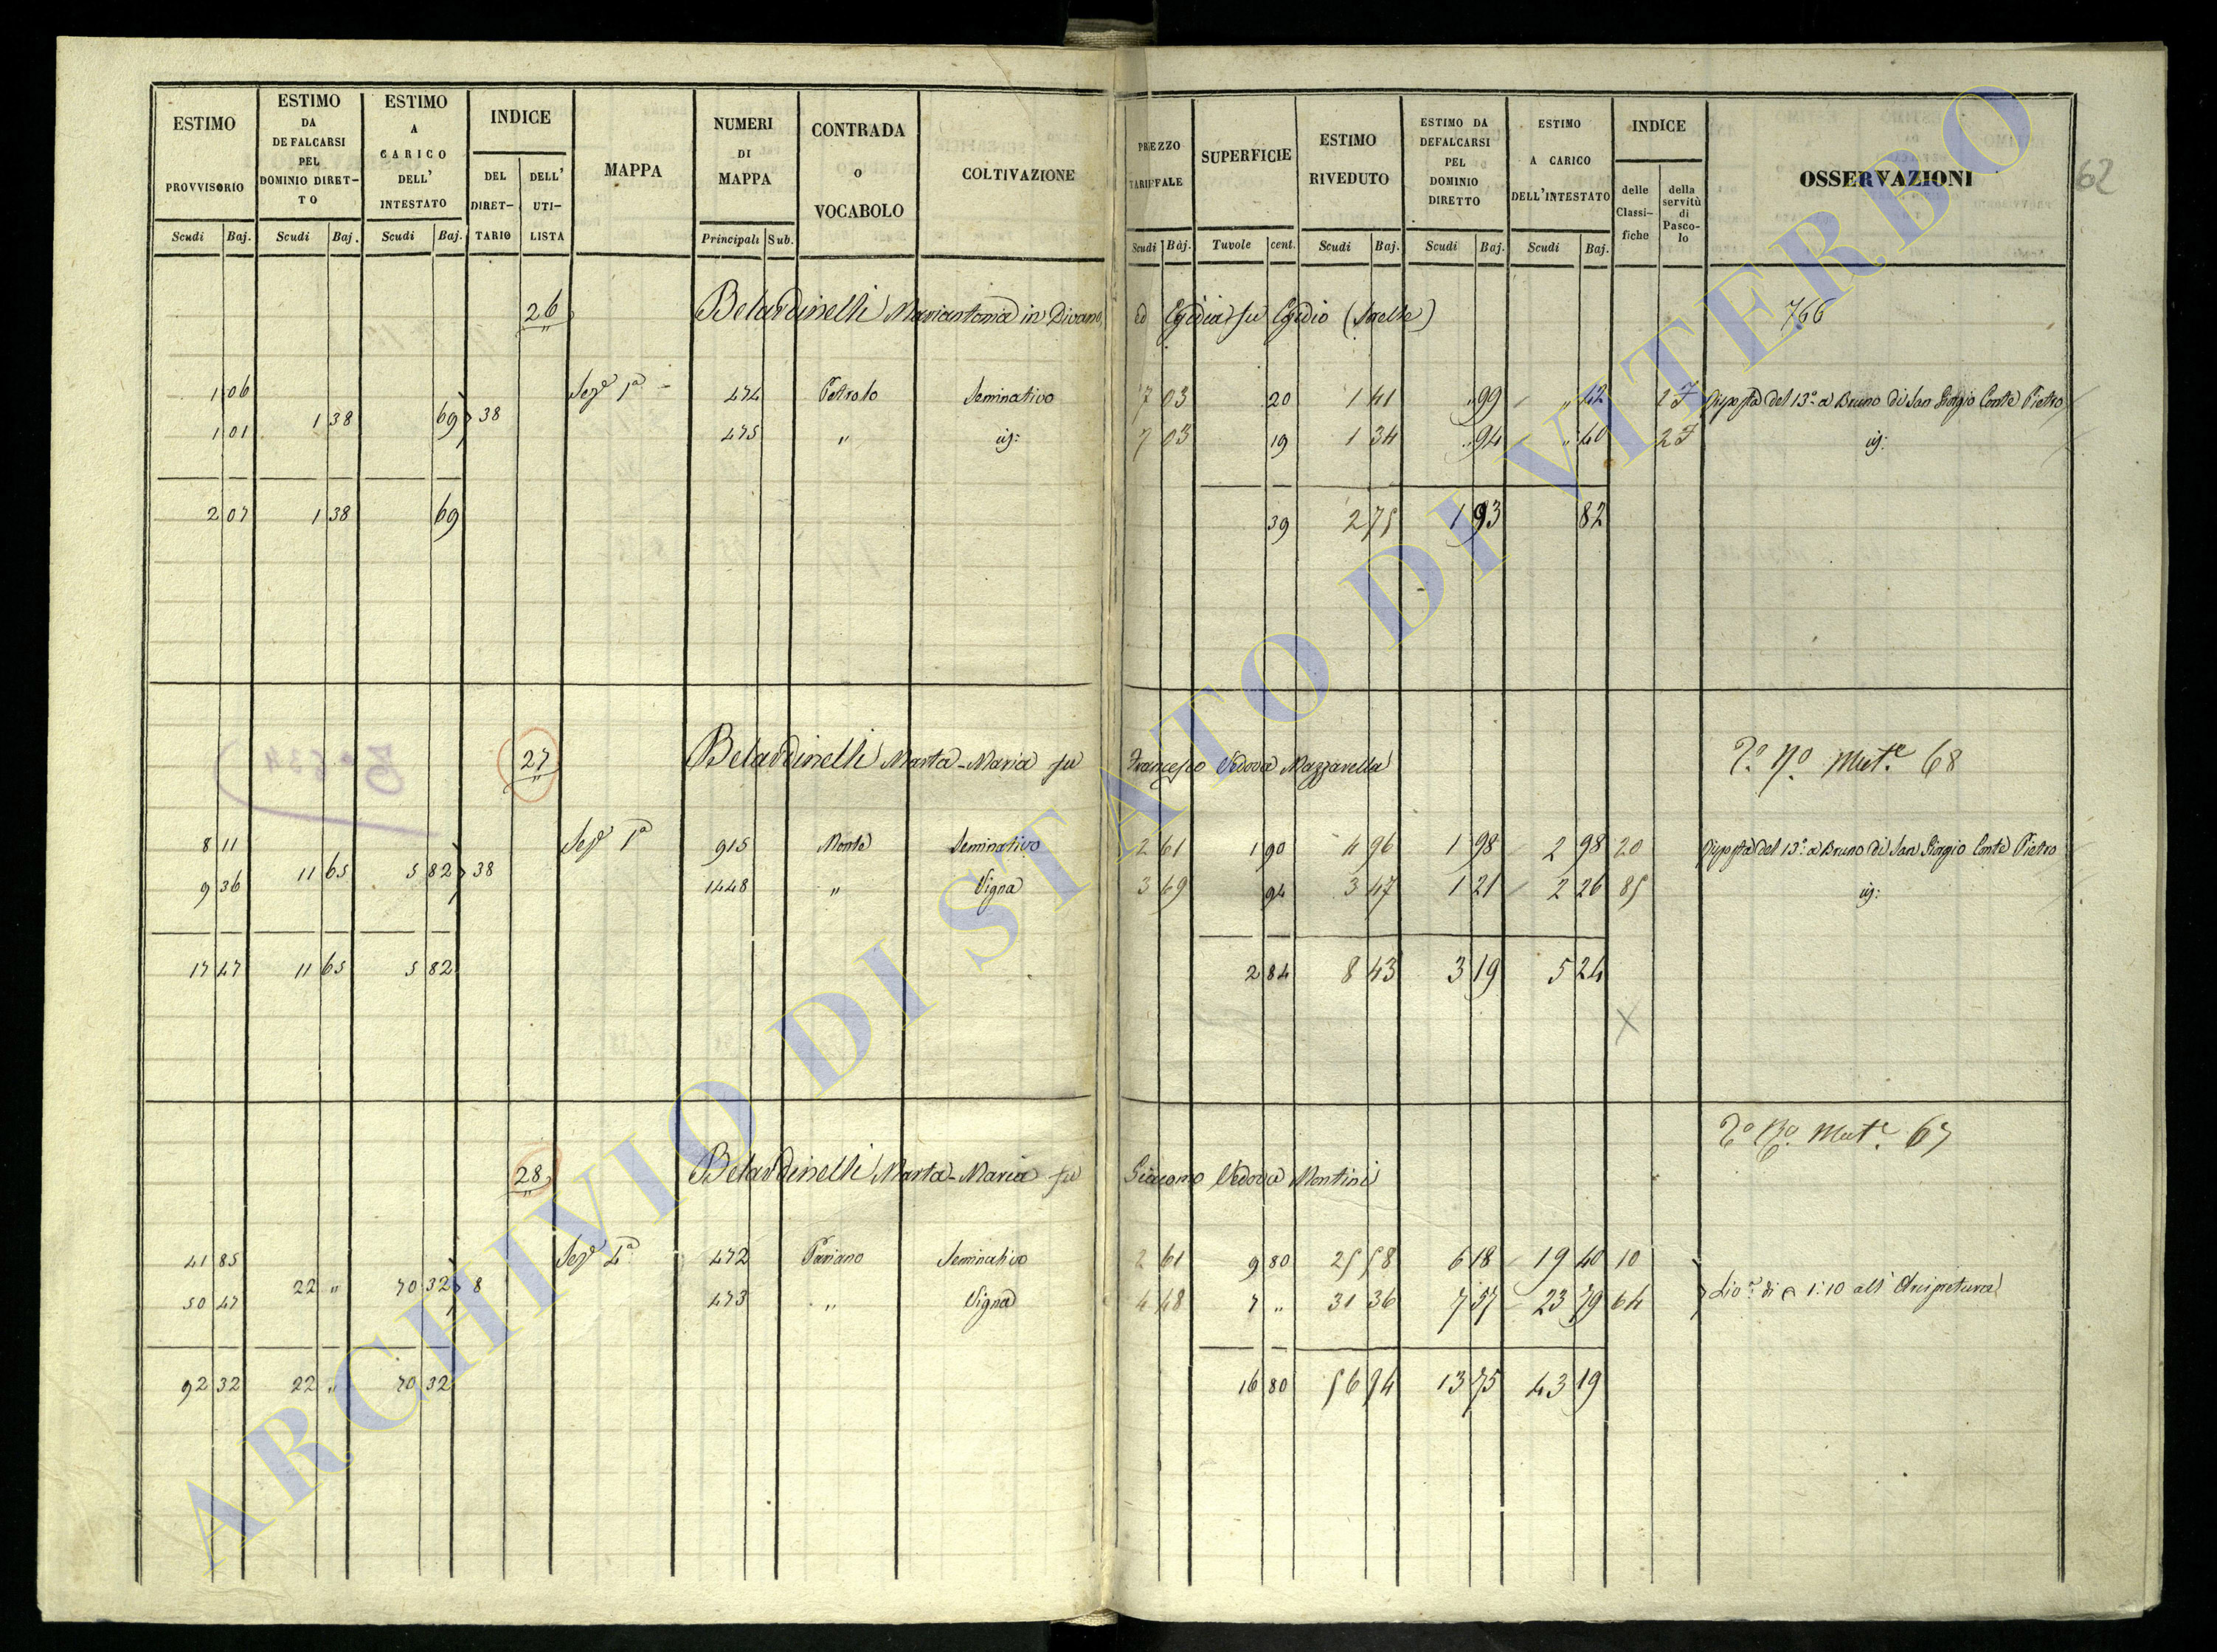 ESTIMO PROVVISORIO Scudi Baj.
ESTIMO DA DEFALCARSI PEL DOMINIO DIRETTO Scudi Baj.
ESTIMO A CARICO DELL' INTESTATO Scudi Baj.
INDICE DEL DIRETTARIO DELL' UTILISTA
MAPPA
NUMERI DI MAPPA Principali Sub.
CONTRADA O VOCABOLO
COLTIVAZIONE
PREZZO TARIFFALE Scudi Baj.
SUPERFICIE Tavole cent.
ESTIMO RIVEDUTO Scudi Baj.
ESTIMO DA DEFALCARSI PEL DOMINIO DIRETTO Scudi Baj.
ESTIMO A CARICO DELL'INTESTATO Scudi Baj.
INDICE delle Classifiche della servitù di Pascolo
OSSERVAZIONI
62
26 Belardinelli Mariantonia in Divano ed Egidia fu Egidio (Sorelle) 766
1 06 Sez.e 1a 474 Petrolo Seminativo 7 03 20 1 41 " 99 " 42 27 Risposta del 13.o a Bruno di San Giorgio Conte Pietro
1 38 69 38
1 01 475 " id: 7 03 19 1 34 " 94 " 40 27 id:
2 07 1 38 69 39 2 75 1 93 82
27 Belardinelli Marta-Maria fu Francesco Vedova Mazzarella Mut.e 68
8 11 Sez.e 1a 915 Monte Seminativo 2 61 1 90 4 96 1 98 2 98 20 Risposta del 13.o a Bruno di San Giorgio Conte Pietro
11 65 5 82 38
9 36 1448 " Vigna 3 69 94 3 47 1 21 2 26 85 id:
17 47 11 65 5 82 2 84 8 43 3 19 5 24
X
Mut.e 67
28 Belardinelli Marta-Maria fu Giacomo Vedova Montini
41 85 Sez.e 4a 472 Pariano Seminativo 2 61 9 80 25 58 6 18 19 40 10
22 " 70 32 8 1:10 all' Arcipretura
50 47 473 " Vigna 4 48 7 " 31 36 7 57 23 79 64
92 32 22 " 70 32 16 80 56 94 13 75 43 19
ARCHIVIO DI STATO DI VITERBO